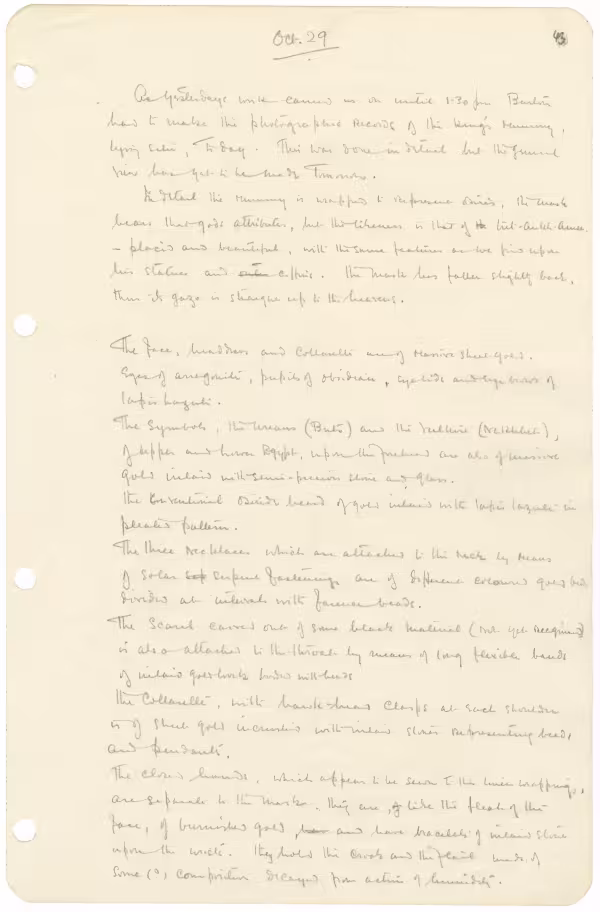 Oct. 29
43
As yesterdays work carried us on until 1.30 pm Burton
had to make the photographic records of the King's mummy,
lying in situ, To-day. This was done in detail but the general
view have yet to be made Tomorrow.
In detail the mummy is wrapped to represent Osiris, the mask
bears that gods attributes, but the likeness is that of Tut-Ankh-Amen
- placid and beautiful, with the same features as we find upon
his statues and coffins. The mask has fallen slightly back,
thus its gaze is straight up to the heavens.
The face, headdress and collarette are of massive sheet gold.
Eyes of arragonite, pupils of obsidian, eyelids and eyebrows of
lapis lazuli.
The Symbols, the Uraeus (Buto) and the Vulture (Nekhbet),
of upper and lower Egypt, upon the forehead are also of massive
gold inlaid with semi-precious stone and glass.
The conventional Osiride beard of gold inlaid with lapis lazuli in
pleated pattern.
The three necklaces which are attached to the neck by means
of solar serpent fastenings are of different coloured gold
divided at intervals with faience beads.
The Scarab carved out of some black material (not yet recognised)
is also attached to the throat by means of long flexible bands
of inlaid gold-work with beads
The Collarette, with hawk-head clasps at each shoulder
is of sheet gold incrusted with inlaid stones representing beads
and pendants.
The closed hands, which appear to be sewn to the linen wrappings,
are separate to the mask. They are, like the flesh of the
face, of burnished gold, and have bracelets of inlaid stone
upon the wrists. They hold the Crook and the flail made of
some (?) composition decayed from action of humidity.